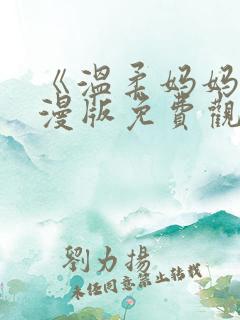 《温柔妈妈
漫版免費觀
劉力揚
未经同意禁止转载